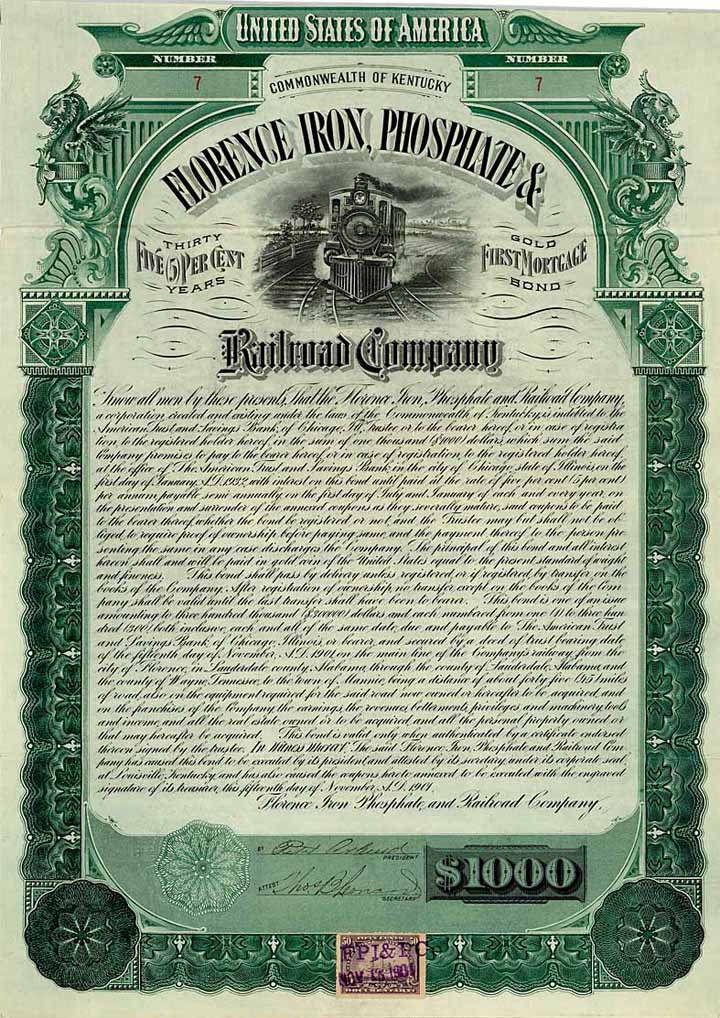 UNITED STATES OF AMERICA
NUMBER
7
COMMONWEALTH OF KENTUCKY
NUMBER
7
FLORENCE IRON, PHOSPHATE &
THIRTY
FIVE (5) PER CENT
YEARS
GOLD
FIRST MORTGAGE
BOND
Railroad Company
Know all men by these presents, That the Florence Iron, Phosphate and Railroad Company,
a corporation created and existing under the laws of the Commonwealth of Kentucky, is indebted to the
American Trust and Savings Bank, of Chicago, Ill., Trustee, or to the bearer hereof, or in case of registra
tion, to the registered holder hereof, in the sum of one thousand ($1000) dollars, which sum the said
Company promises to pay to the bearer hereof, or in case of registration, to the registered holder hereof,
at the office of The American Trust and Savings Bank, in the city of Chicago, state of Illinois, on the
first day of January, A.D. 1932, with interest on this bond until paid at the rate of five per cent (5 per cent)
per annum, payable semi annually on the first day of July and January of each and every year, on
the presentation and surrender of the annexed coupons as they severally mature, said coupons to be paid
to the bearer thereof, whether the bond be registered or not, and the Trustee may but shall not be ob
liged, to require proof of ownership before paying same, and the payment thereof to the person pre
senting the same in any case discharges the Company. The principal of this bond and all interest
hereon shall and will be paid in gold coin of the United States equal to the present standard of weight
and fineness. This bond shall pass by delivery unless registered or if registered by transfer on the
books of the Company. After registration of ownership, no transfer, except on the books of the Com
pany shall be valid until the last transfer shall have been to bearer. This bond is one of an issue
amounting to three hundred thousand ($300000) dollars and each numbered from one (1) to three hun
dred (300) both inclusive, each and all of the same date, due and payable to The American Trust
and Savings Bank, of Chicago, Illinois, or bearer, and secured by a deed of trust bearing date
of the fifteenth day of November, A.D. 1901, on the main line of the Company's railway, from the
city of Florence, in Lauderdale county, Alabama, through the county of Lauderdale, Alabama, and
the county of Wayne, Tennessee, to the town of Mannie, being a distance of about forty five (45) miles
of road, also on the equipment required for the said road now owned or hereafter to be acquired, and
on the franchises of the Company, the earnings, the revenues, betterments, privileges and machinery, tools
and income, and all the real estate owned or to be acquired, and all the personal property owned or
that may hereafter be acquired. This bond is valid only when authenticated by a certificate endorsed
thereon signed by the trustee. In Witness Whereof, The said Florence Iron, Phosphate and Railroad Com
pany has caused this bond to be executed by its president and attested by its secretary, under its corporate seal,
at Louisville, Kentucky, and has also caused the coupons hereto annexed to be executed with the engraved
signature of its treasurer, this fifteenth day of November, A.D. 1901.
Florence Iron Phosphate and Railroad Company,
BY
PRESIDENT
ATTEST
SECRETARY
$1000
50 FIFTY CENTS 50
F.P.I. & R. Co
NOV 15 1901
DOCUMENTARY